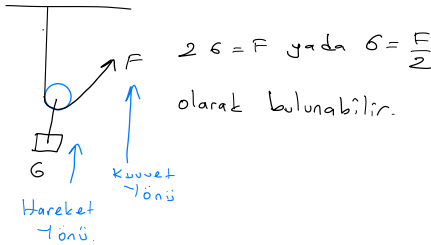 F
2 G = F yada G = F/2
olarak bulunabilir.
G
Kuvvet
Yönü
Hareket
Yönü.